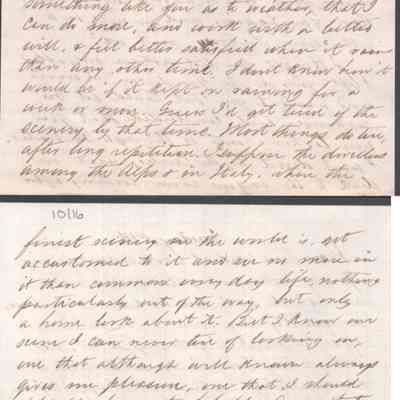 something like you as to weather, that I
can do more, and work with a better
will, & feel better satisfied when it rains
than any other time. I dont know how it
would be if it kept on raining for a
week or more. Guess I'd get tired of the
scenery by that time. Most things do tire,
after long repetition. I suppose the dwellers
among the Alps & in Italy, where the
10/16
finest scenery in the world is, get
accustomed to it and see no more in
it than common every day life, nothing
particularly out of the way, but only
a home look about it. But I know one
scene I can never tire of looking on,
one that although well known always
gives me pleasure, one that I should